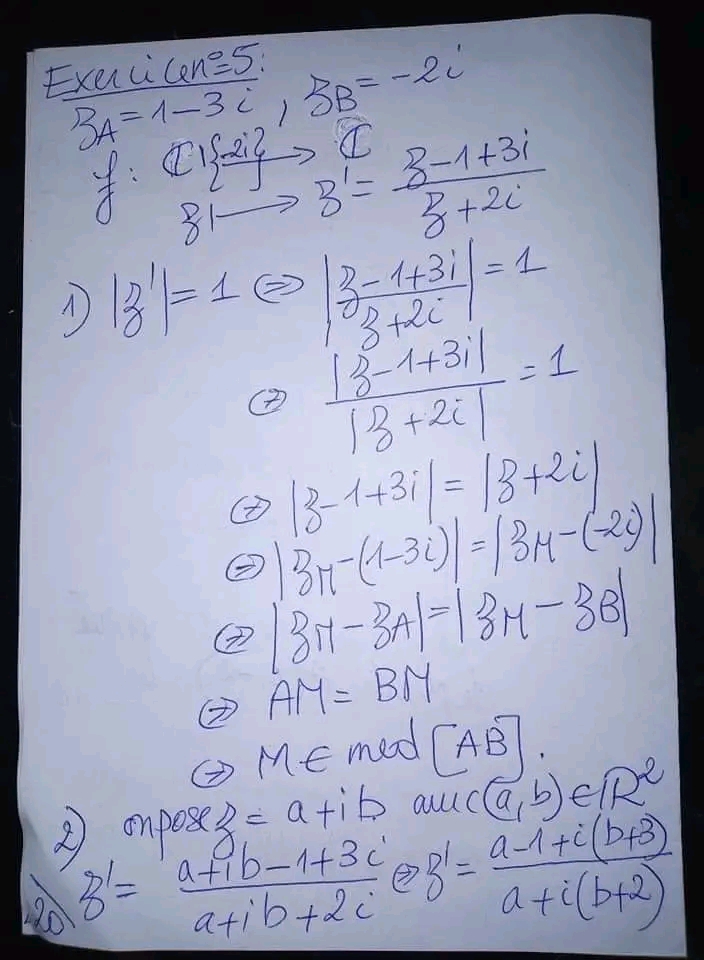 Exercice n°5:
z_A = 1-3i , z_B = -2i
f: ℂ\{-2i} → ℂ
z ↦ z' = (z-1+3i)/(z+2i)
1) |z'| = 1 ⇔ |(z-1+3i)/(z+2i)| = 1
⇔ |z-1+3i|/|z+2i| = 1
⇔ |z-1+3i| = |z+2i|
⇔ |z_M-(1-3i)| = |z_M-(-2i)|
⇔ |z_M - z_A| = |z_M - z_B|
⇔ AM = BM
⇔ M ∈ med [AB].
2) on pose z = a+ib avec (a,b) ∈ ℝ²
z' = (a+ib-1+3i)/(a+ib+2i) ⇔ z' = (a-1+i(b+3))/(a+i(b+2))